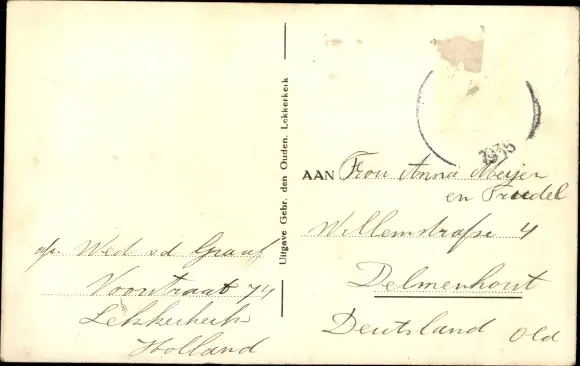 1935
AAN Frou Anna Meijer
en Trudel
Willemstrafse 4
Delmenhorst
Deutsland Old
Uitgave Gebr. den Ouden. Lekkerkerk
afz. Wed v d Graaf
Voorstraat 74
Lekkerkerk
Holland